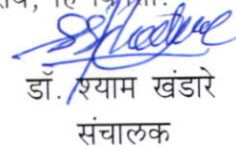 डॉ. श्याम खंडारे
संचालक